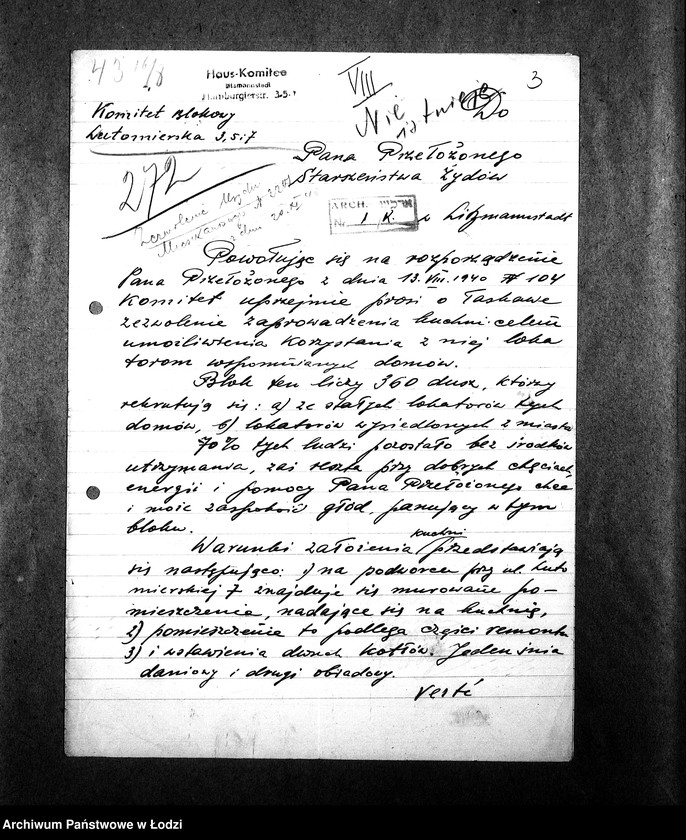 43 16/8
Haus-Komitee
Litzmannstadt
Hamburgerstr. 3.5.7
VIII
3
Nie istnieje
Komitet Blokowy
Lutomierska 3,5i7
Do
272
Pana Przełożonego
Starszeństwa Żydów
w Litzmannstadt
ARCH.
Nr. 1 K.
Powołując się na rozporządzenie
Pana Przełożonego z dnia 13.VIII.1940 № 104
Komitet uprzejmie prosi o łaskawe
zezwolenie zaprowadzenia kuchni celem
umożliwienia korzystania z niej loka
torom wspomnianych domów.
Blok ten liczy 360 dusz, którzy
rekrutują się: a) ze stałych lokatorów tych
domów, b) lokatorów wysiedlonych z miasta
70% tych ludzi pozostało bez środków
utrzymania, zaś reszta przy dobrych chęciach,
energii i pomocy Pana Przełożonego chce
i może zaspokoić głód, panujący w tym
bloku.
Warunki założenia kuchni przedstawiają
się następująco: 1) na podworcu przy ul. Luto
mierskiej 7 znajduje się murowane po-
mieszczenia, nadające się na kuchnię,
2) pomieszczenie to podlega części remontu
3) i wstawienia dwuch kotłów. Jeden śnia
daniowy i drugi obiadowy.
verte
Archiwum Państwowe w Łodzi